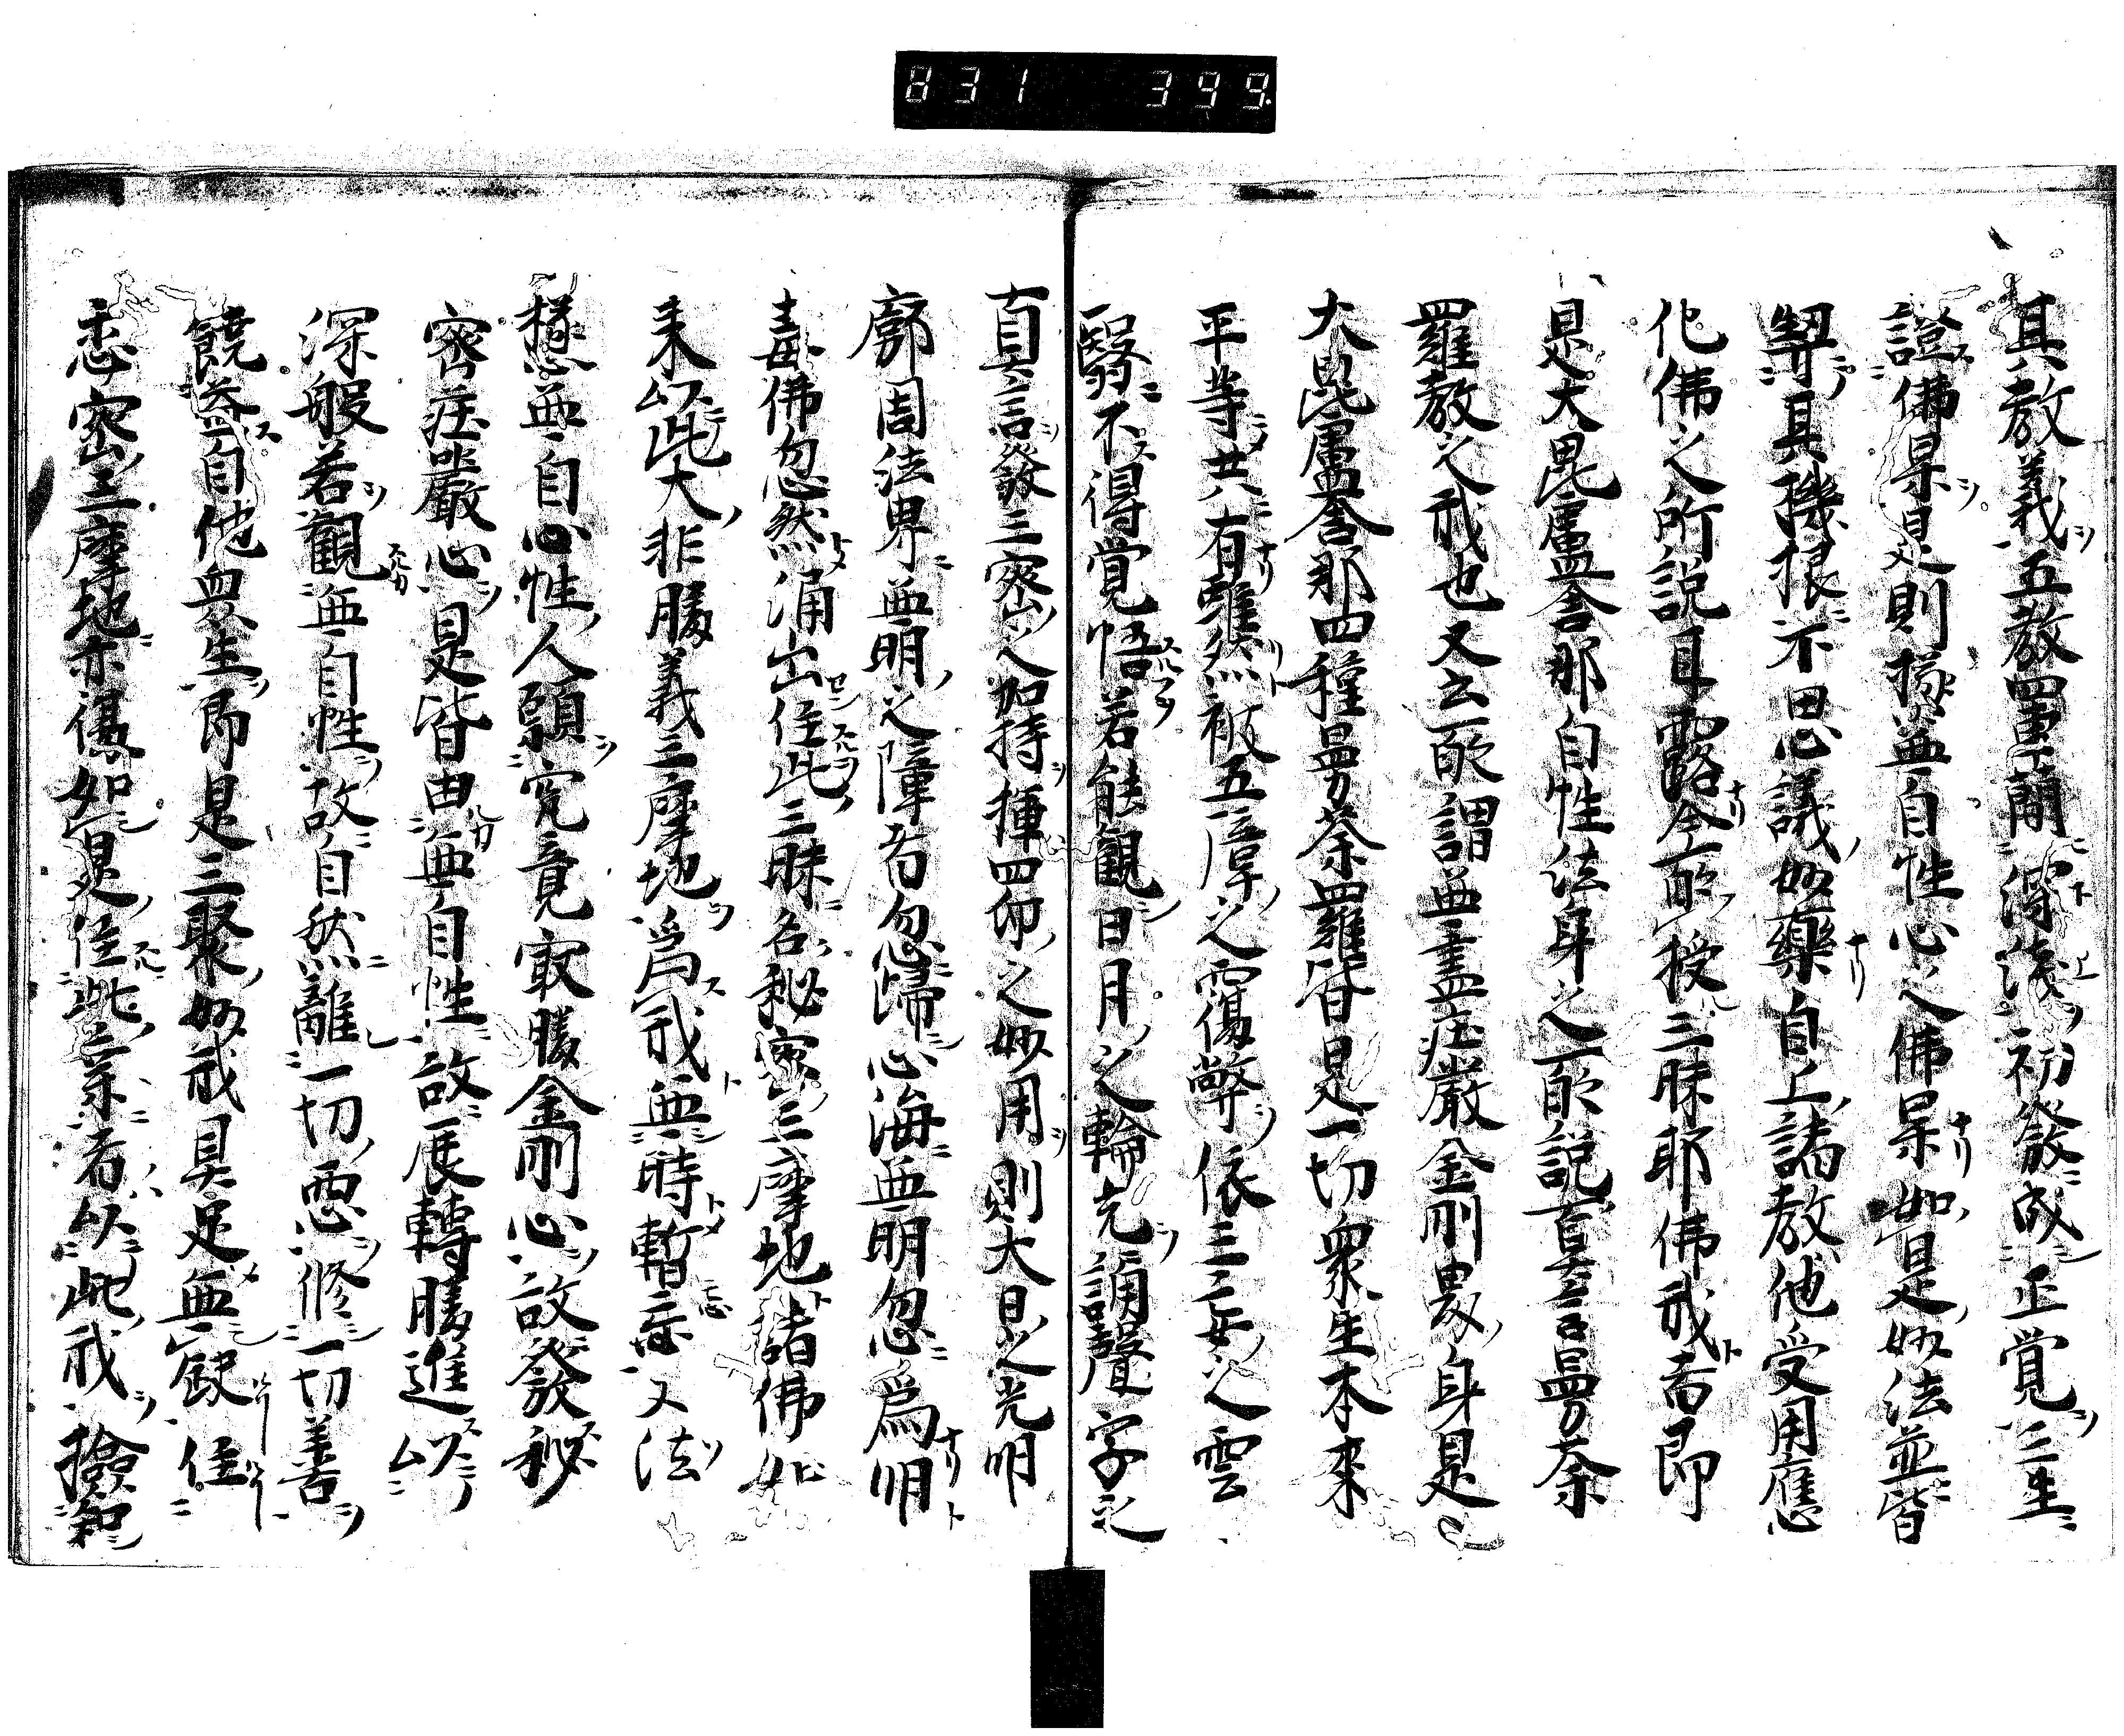 831 399
其教義五教四重蘭深淺初發成正覺三生
證佛果是則採無自性心之佛果如是妙法並皆
契其機根不思議妙藥自上諸教他受用應
化佛之所說耳露今所授三昧耶佛戒者即
是大毘盧舍那自性法身之所說真言曼荼
羅教之戒也又云所謂無盡莊嚴金剛界身是
大毘盧舍那四種曼荼羅皆是一切衆生本來
平等共有雖然被五障之霧弊依三妄之雲
翳不得覺悟若能觀日月之輪光誦聲字之
真言發三密之加持揮四印之妙用則大日之光明
廓周法界無明之障者忽歸心海無明忽爲明
毒佛忽然涌出住此三昧名秘密三摩地諸佛如
來以此大悲勝義三摩地爲戒無時暫忘又法
樣無自心性人願究竟最勝金剛心故發秘
密莊嚴心是皆由無自性故展轉勝進以
深般若觀無自性故自然離一切惡修一切善
饒益自他衆生即是三聚妙戒具足無缺住
悉密三摩地亦復如是住此乘者以此戒撿知